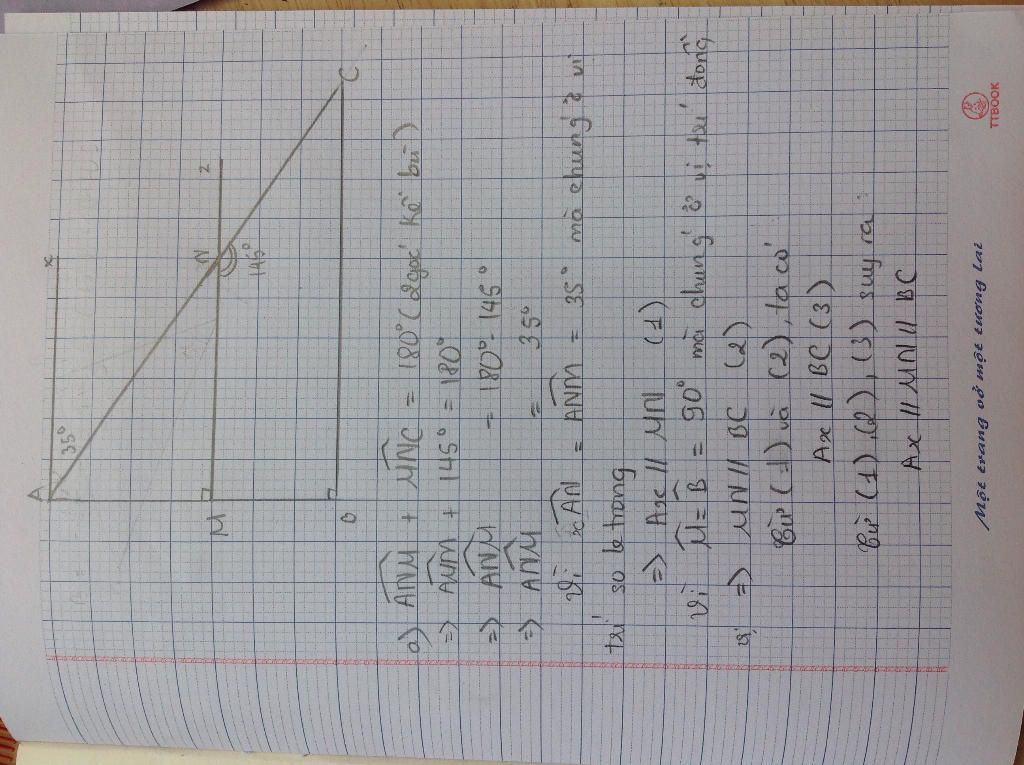 A
x
35°
M
N
z
145°
B
C
a) ANM + MNC = 180° (2góc kề bù)
=> ANM + 145° = 180°
=> ANM = 180° - 145°
=> ANM = 35°
Vì xAN = ANM = 35° mà chúng ở vị
trí so le trong
=> Ax // MN (1)
Vì M = B = 90° mà chúng ở vị trí đồng
vị => MN // BC (2)
Từ (1) và (2), ta có
Ax // BC (3)
Từ (1), (2), (3) suy ra:
Ax // MN // BC
Một trang vở một tương lai
TTBOOK